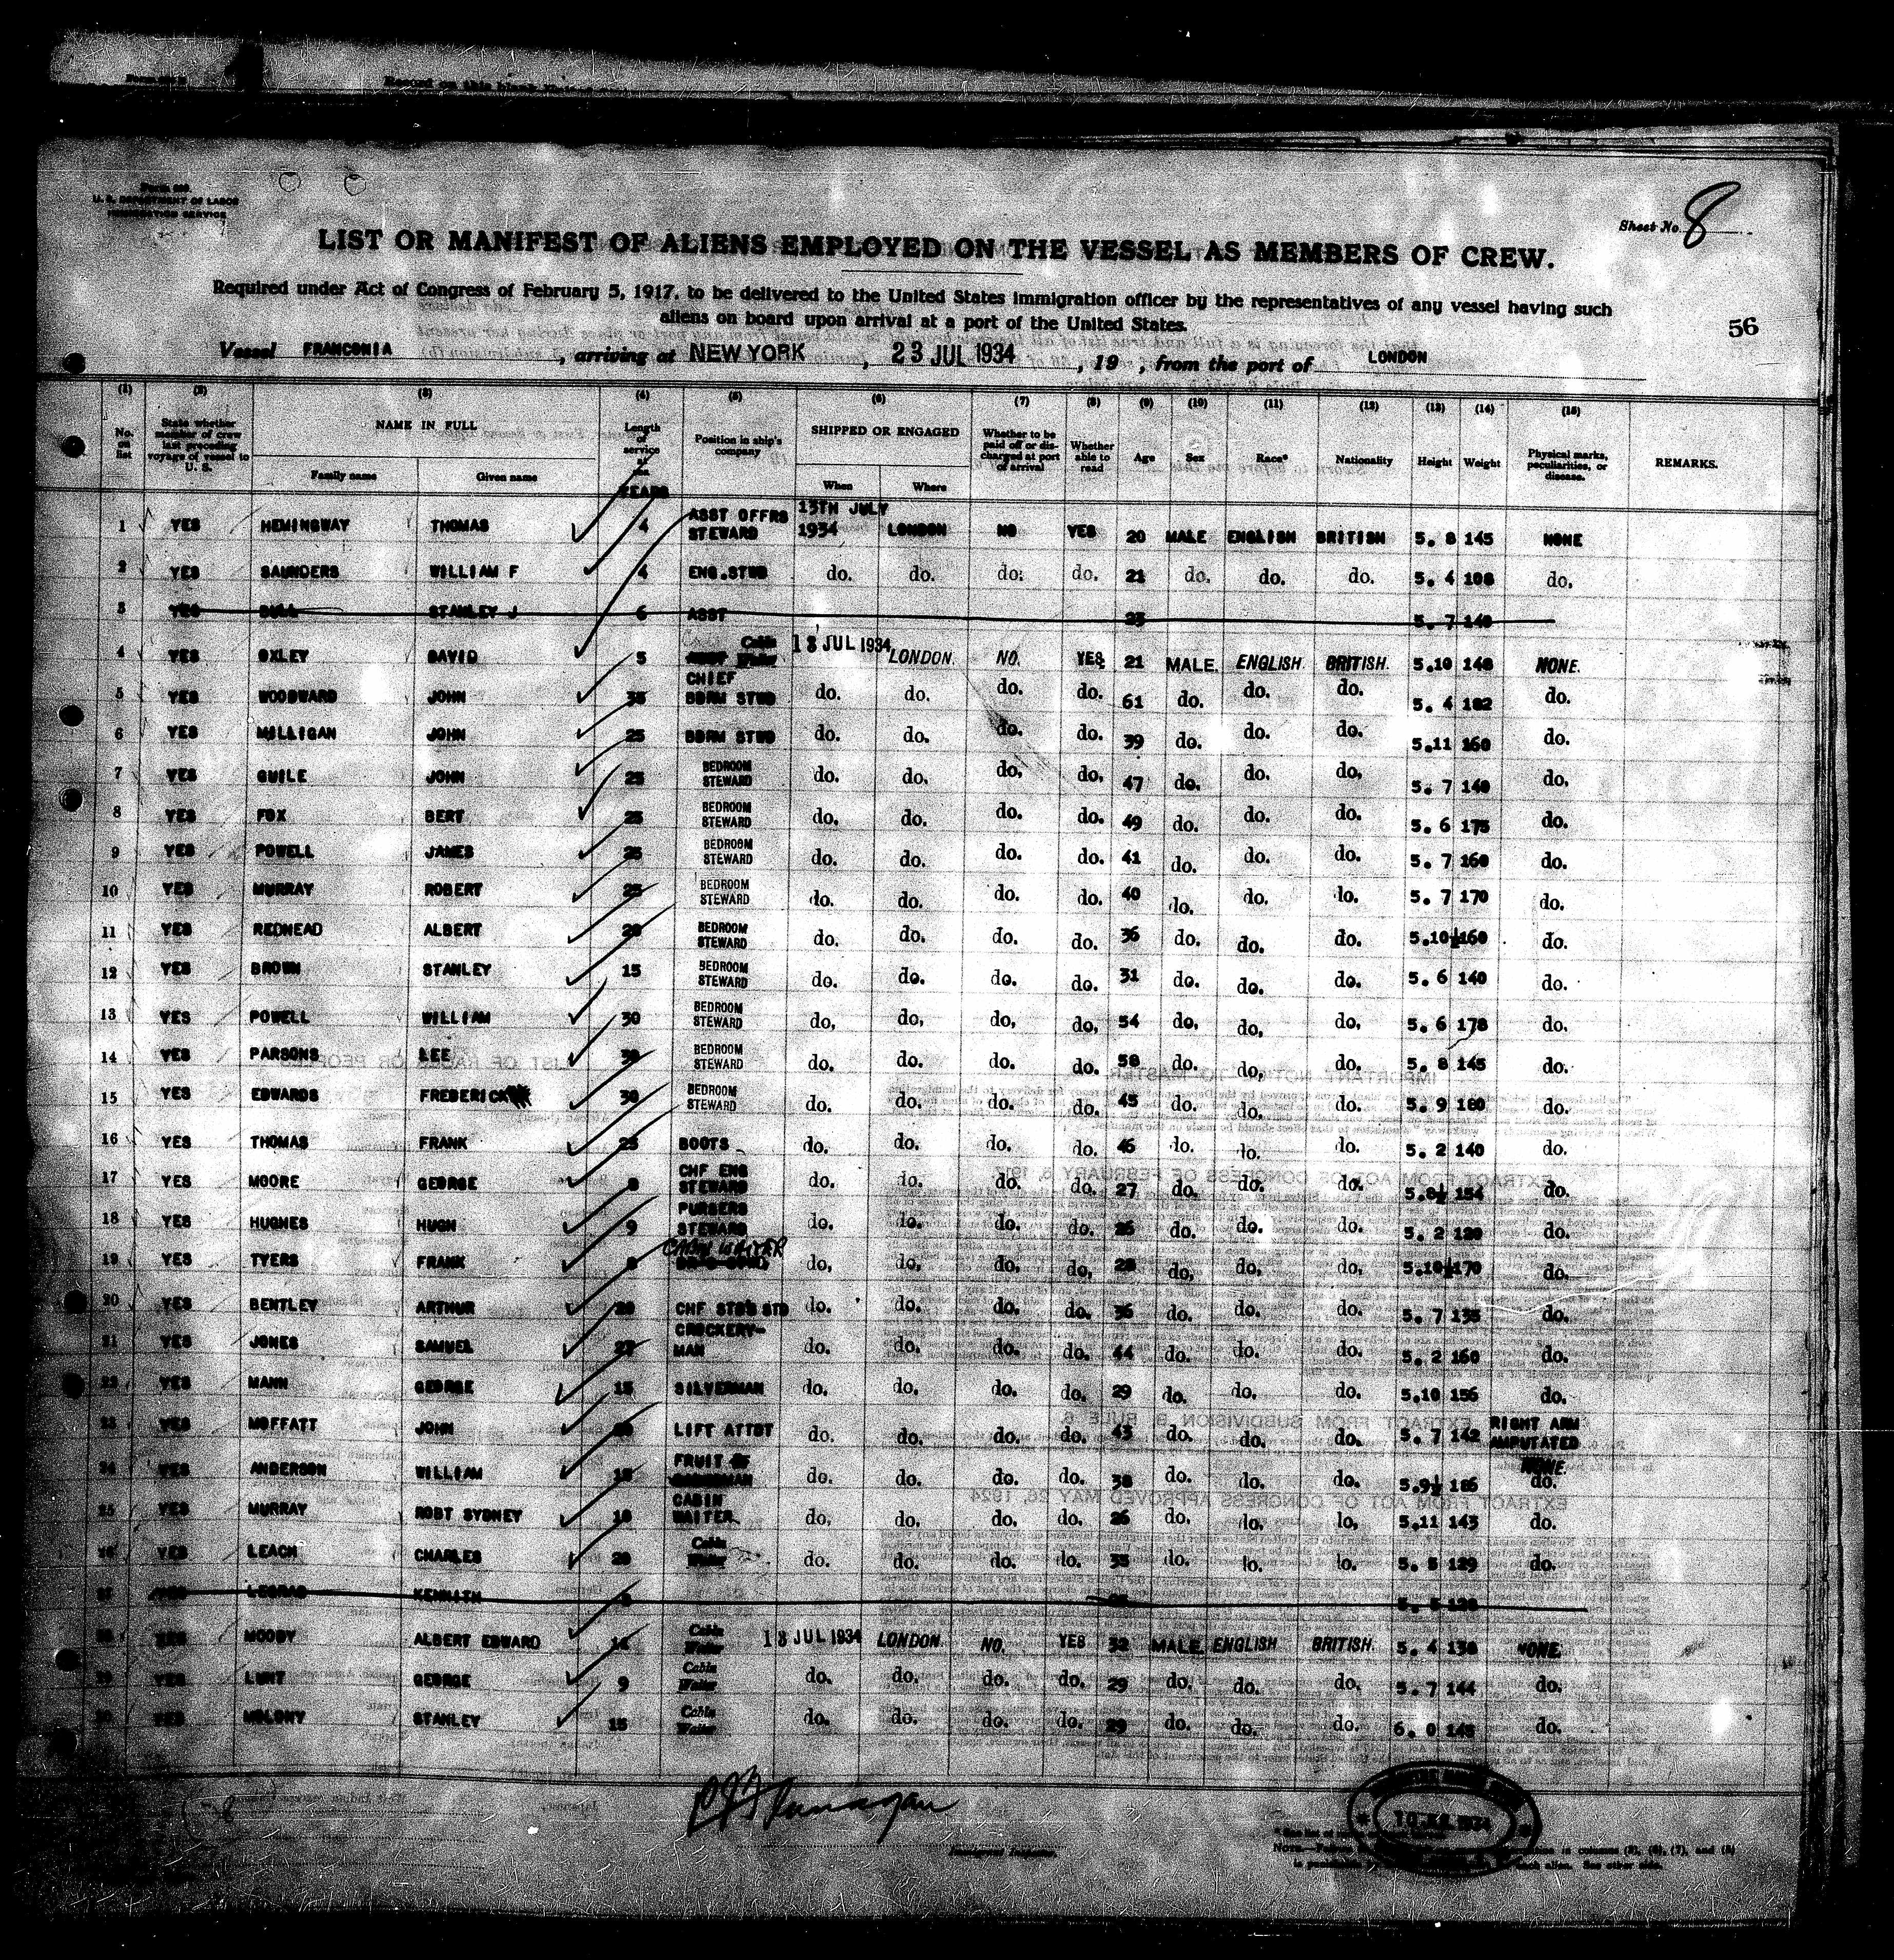 Record on this blank
Form 689
U. S. DEPARTMENT OF LABOR
IMMIGRATION SERVICE
Sheet No. 8
LIST OR MANIFEST OF ALIENS EMPLOYED ON THE VESSEL AS MEMBERS OF CREW.
Required under Act of Congress of February 5, 1917, to be delivered to the United States immigration officer by the representatives of any vessel having such
aliens on board upon arrival at a port of the United States.
56
Vessel FRANCONIA, arriving at NEW YORK, 23 JUL 1934, 19 , from the port of LONDON
(1) (2) (3) (4) (5) (6) (7) (8) (9) (10) (11) (12) (13) (14) (15)
No. on list State whether member of crew last preceding voyage of vessel to U. S. NAME IN FULL Length of service at sea Position in ship's company SHIPPED OR ENGAGED Whether to be paid off or discharged at port of arrival Whether able to read Age Sex Race* Nationality Height Weight Physical marks, peculiarities, or disease. REMARKS.
Family name Given name YEARS When Where
1 YES HEMINGWAY THOMAS 4 ASST OFFRS STEWARD 13TH JULY 1934 LONDON NO YES 20 MALE ENGLISH BRITISH 5. 8 145 NONE
2 YES SAUNDERS WILLIAM F 4 ENG.STWD do. do. do. do. 21 do. do. do. 5. 4 108 do.
3 YES BULL STANLEY J 6 ASST 23 5. 7 140
4 YES OXLEY DAVID 5 Cabin Waiter 13 JUL 1934 LONDON. NO. YES 21 MALE. ENGLISH. BRITISH. 5.10 148 NONE.
5 YES WOODWARD JOHN 35 CHIEF BDRM STWD do. do. do. do. 61 do. do. do. 5. 4 182 do.
6 YES MILLIGAN JOHN 25 BDRM STWD do. do. do. do. 39 do. do. do. 5.11 160 do.
7 YES GUILE JOHN 25 BEDROOM STEWARD do. do. do. do. 47 do. do. do. 5. 7 140 do.
8 YES FOX BERT 25 BEDROOM STEWARD do. do. do. do. 49 do. do. do. 5. 6 175 do.
9 YES POWELL JAMES 25 BEDROOM STEWARD do. do. do. do. 41 do. do. do. 5. 7 160 do.
10 YES MURRAY ROBERT 25 BEDROOM STEWARD do. do. do. do. 40 do. do. do. 5. 7 170 do.
11 YES REDHEAD ALBERT 20 BEDROOM STEWARD do. do. do. do. 36 do. do. do. 5.10½ 160 do.
12 YES BROWN STANLEY 15 BEDROOM STEWARD do. do. do. do. 31 do. do. do. 5. 6 140 do.
13 YES POWELL WILLIAM 30 BEDROOM STEWARD do. do. do. do. 54 do. do. do. 5. 6 178 do.
14 YES PARSONS LEE 30 BEDROOM STEWARD do. do. do. do. 50 do. do. do. 5. 8 145 do.
15 YES EDWARDS FREDERICK 30 BEDROOM STEWARD do. do. do. do. 45 do. do. do. 5. 9 180 do.
16 YES THOMAS FRANK 25 BOOTS do. do. do. do. 46 do. do. do. 5. 2 140 do.
17 YES MOORE GEORGE 8 CHF ENG STEWARD do. do. do. do. 27 do. do. do. 5.8½ 154 do.
18 YES HUGHES HUGH 9 PURSERS STEWARD do. do. do. do. 26 do. do. do. 5. 2 120 do.
19 YES TYERS FRANK CABIN WAITER do. do. do. do. 28 do. do. do. 5.10½ 170 do.
20 YES BENTLEY ARTHUR 20 CHF STD'S STD do. do. do. do. 36 do. do. do. 5. 7 135 do.
21 YES JONES SAMUEL 27 CROCKERY-MAN do. do. do. do. 44 do. do. do. 5. 2 160 do.
22 YES MANN GEORGE 15 SILVERMAN do. do. do. do. 29 do. do. do. 5.10 156 do.
23 YES MOFFATT JOHN LIFT ATTDT do. do. do. do. 43 do. do. do. 5. 7 142 RIGHT ARM AMPUTATED
24 YES ANDERSON WILLIAM 15 FRUIT do. do. do. do. 38 do. do. do. 5.9½ 186 NONE. do.
25 YES MURRAY ROBT SYDNEY 10 CABIN WAITER do. do. do. do. 26 do. do. do. 5.11 143 do.
26 YES LEACH CHARLES 20 Cabin Waiter do. do. do. do. 35 do. do. do. 5. 5 129 do.
27 KENNATH 5. 5
28 YES MOODY ALBERT EDWARD 14 Cabin Waiter 13 JUL 1934 LONDON. NO. YES 32 MALE. ENGLISH BRITISH. 5. 4 138 NONE.
29 YES LUNT GEORGE 9 Cabin Waiter do. do. do. do. 29 do. do. do. 5. 7 144 do.
30 YES MOLONY STANLEY 15 Cabin Waiter do. do. do. do. 29 do. do. do. 6. 0 148 do.
Immigrant Inspector.